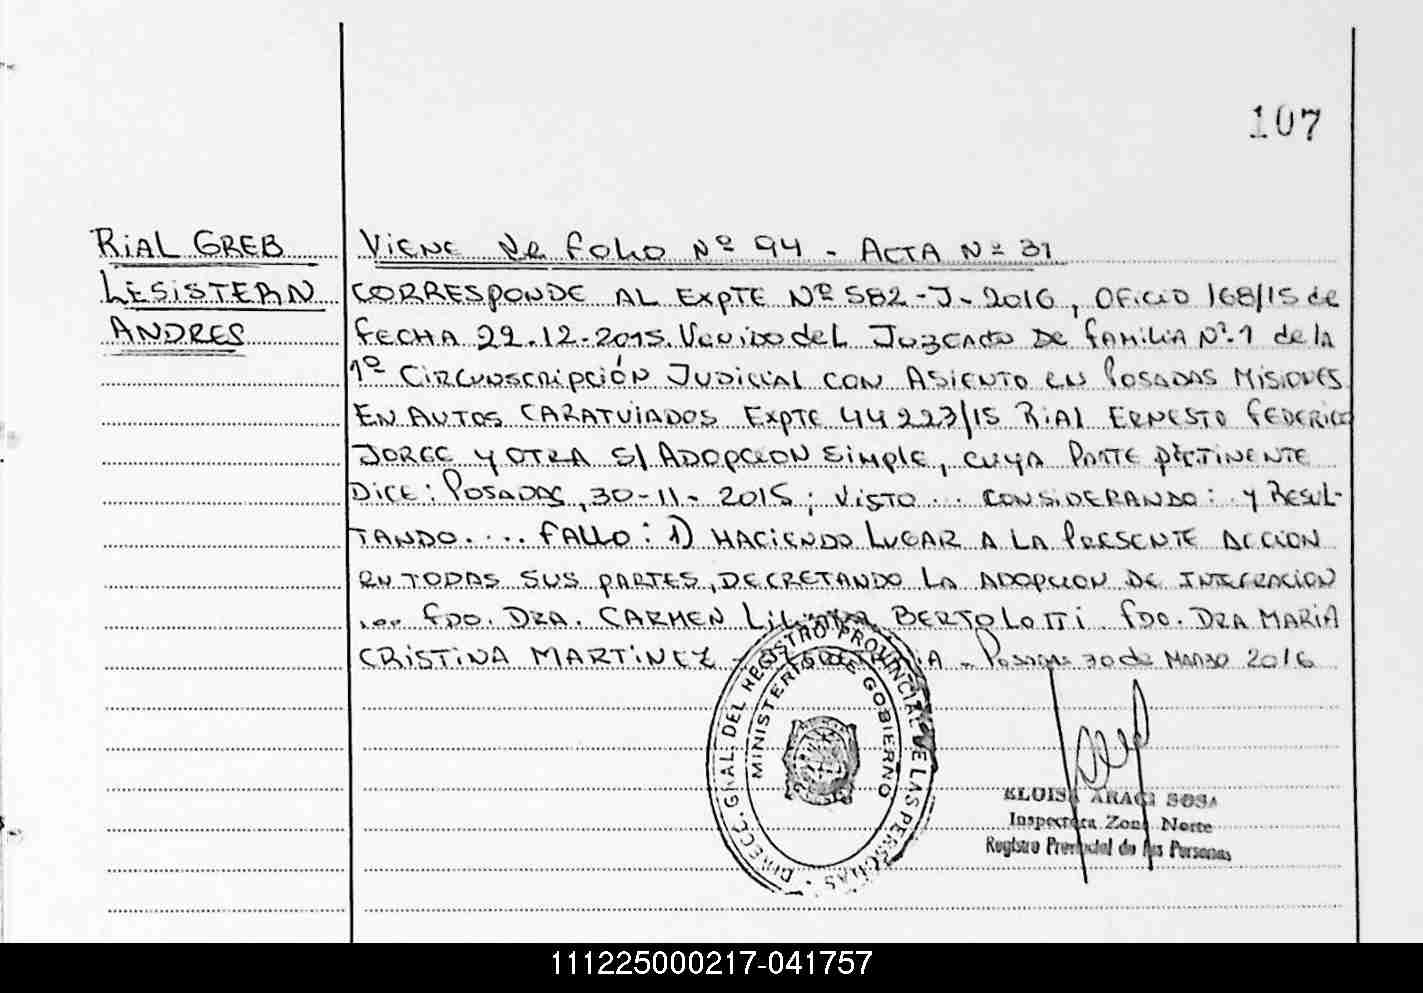 107
RIAL GREB
LESISTERN
ANDRES
VIENE de folio Nº 94 - ACTA Nº 31
CORRESPONDE AL EXPTE Nº 582-J-2016, OFICIO 168/15 de
FECHA 22.12-2015. Venido del JUZGADO DE FAMILIA Nº.1 de la
1º CIRCUNSCRIPCIÓN JUDICIAL CON ASIENTO en POSADAS MISIONES
EN AUTOS CARATULADOS EXPTE 44223/15 RIAL ERNESTO FEDERICO
JORGE Y OTRA S/ ADOPCION SIMPLE, CUYA PARTE PERTINENTE
DICE: POSADAS, 30-11-2015; VISTO ... CONSIDERANDO: y RESUL-
TANDO.... FALLO: 1) HACIENDO LUGAR A LA PRESENTE ACCION
en TODAS SUS PARTES, DECRETANDO LA ADOPCION DE INTEGRACION
... FDO. DRA. CARMEN BERTOLOTTI FDO. DRA MARIA
CRISTINA MARTINEZ - Posadas 30 de MARZO 2016
DIRECC. GRAL. DEL REGISTRO PROVINCIAL DE LAS PERSONAS
MINISTERIO DE GOBIERNO
ELOISA ARACI SOSA
Inspectora Zona Norte
Registro Provincial de las Personas
111225000217-041757